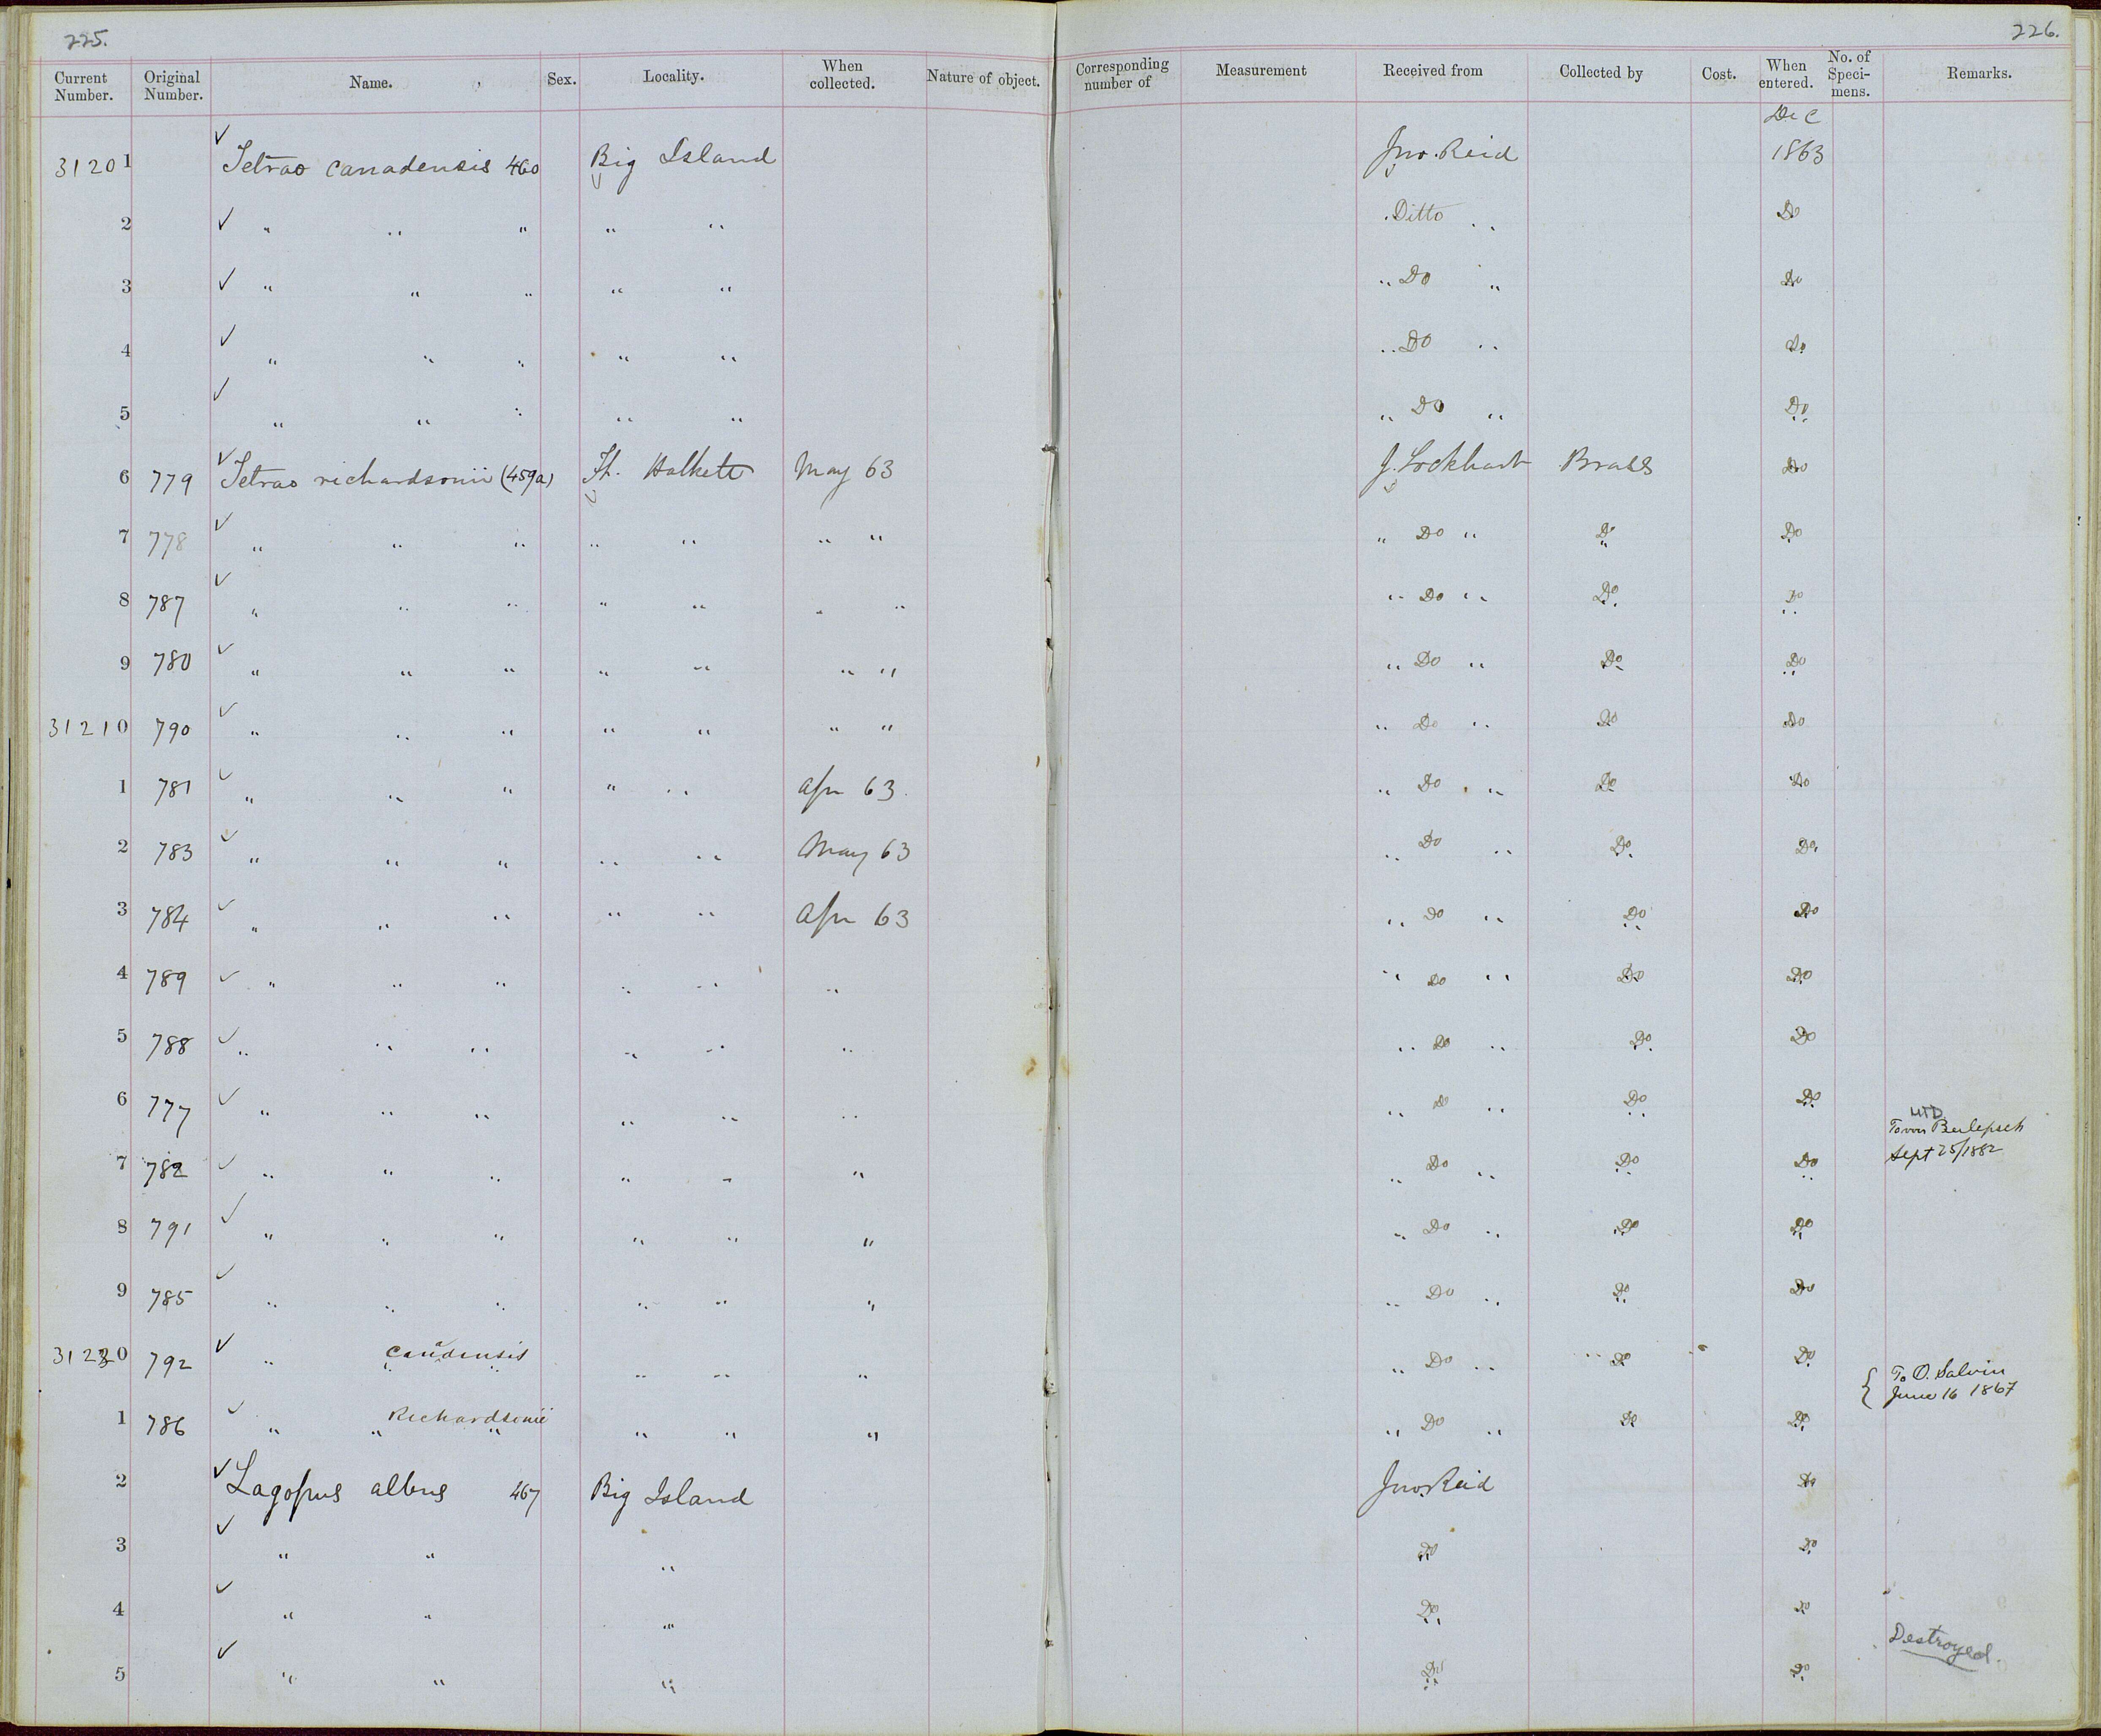 225. 226.
Current Number. Original Number. Name. Sex. Locality. When collected. Nature of object. Corresponding number of Measurement Received from Collected by Cost. When entered. No. of Speci- mens. Remarks.
Dec
31201 ✓ Tetrao canadensis 460 Big Island Jno. Reid 1863
2 ✓ " " " " " Ditto " Do
3 ✓ " " " " " " Do " Do
4 ✓ " " " " " " Do " Do
5 ✓ " " " " " " Do " Do
6 779 ✓ Tetrao richardsonii (459a) Ft. Halkett May 63 J. Lockhart Brass Do
7 778 ✓ " " " " " " " " Do " Do Do
8 787 ✓ " " " " " " " " Do " Do Do
9 780 ✓ " " " " " " " " Do " Do Do
31210 790 ✓ " " " " " " " " Do " Do Do
1 781 ✓ " " " " " Apr 63 " Do " Do Do
2 783 ✓ " " " " " May 63 " Do " Do Do
3 784 ✓ " " " " " Apr 63 " Do " Do Do
4 789 ✓ " " " " " " " Do " Do Do
5 788 ✓ " " " " " " " Do " Do Do
6 777 ✓ " " " " " " " Do " Do Do
To von Berlepsch
7 782 ✓ " " " " " " " Do " Do Do Sept 25/1882
8 791 ✓ " " " " " " " Do " Do Do
9 785 ✓ " " " " " " " Do " Do Do
31220 792 ✓ " canadensis " " " " Do " " Do Do
{ To O. Salvin
June 16 1867
1 786 ✓ " " Richardsonii " " " " " Do " Do Do
2 ✓ Lagopus albus 467 Big Island Jno. Reid Do
3 ✓ " " " Do Do
4 ✓ " " " Do Do
5 ✓ " " " Do Do Destroyed.